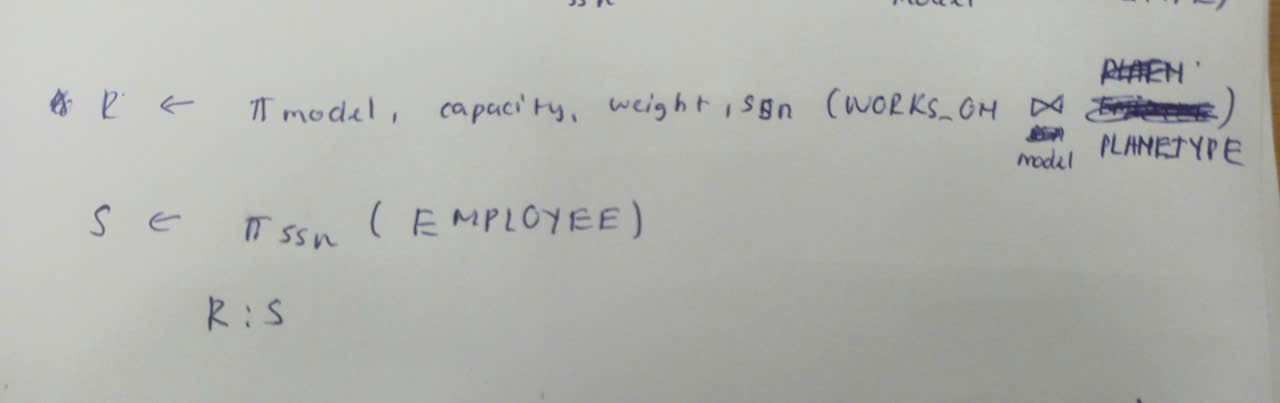 R ← π model, capacity, weight, ssn (WORKS_ON ⋈ model PLANETYPE)
S ← π ssn (EMPLOYEE)
R : S